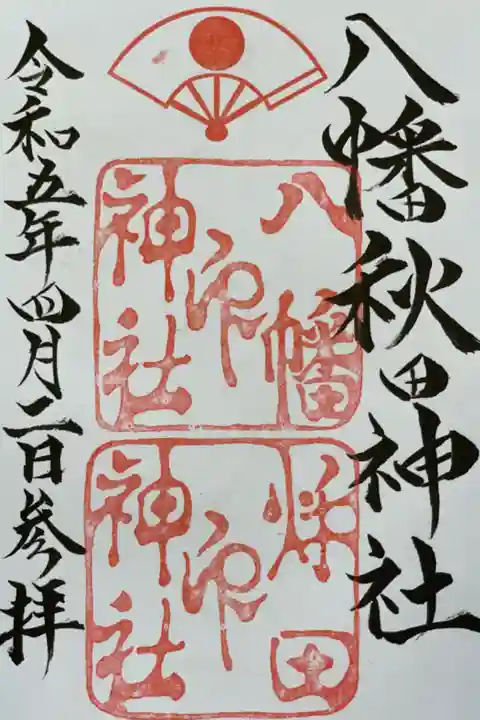 八幡秋田神社
八幡
印
神社
秋田
印
神社
令和五年四月二日参拝